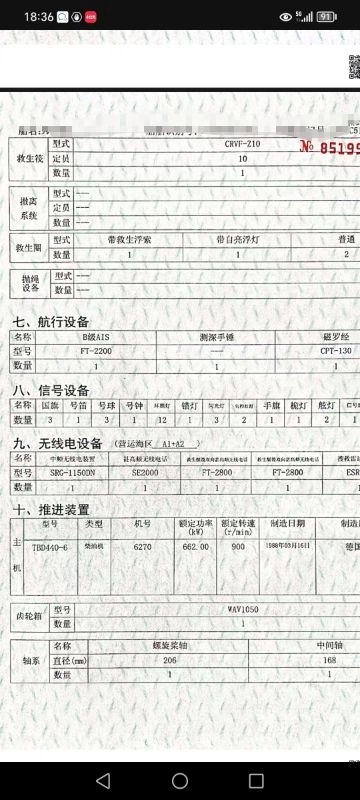 18:36 5G 91
№ 85195
救生筏 型式 CRVF-Z10
定员 10
数量 1
撤离系统 型式 ---
定员 ---
数量 ---
救生圈 型式 带救生浮索 带自亮浮灯 普通
数量 1 1 2
抛绳设备 型式 ---
数量 ---
七、航行设备
名称 B级AIS 测深手锤 磁罗经
型号 FT-2200 --- CPT-130
数量 1 1 1
八、信号设备
名称 国旗 号笛 号球 号钟 环照灯 锚灯 闪光灯 手旗 桅灯 舷灯
数量 3 1 3 1 12 1 3 2 1 1 2 1
九、无线电设备 (营运海区 A1+A2 )
名称 中频无线电装置 甚高频无线电话 救生艇筏双向甚高频无线电话 救生艇筏双向甚高频无线电话
型号 SRG-1150DN SE2000 FT-2800 FT-2800 ESR
数量 1 1 1 1
十、推进装置
主机 型号 类型 机号 额定功率(kW) 额定转速(r/min) 制造日期 制造
TBD440-6 柴油机 6270 662.00 900 1988年03月16日 德国
齿轮箱 型号 WAV1050
数量 1
轴系 名称 螺旋桨轴 中间轴
直径(mm) 206 168
数量 1 1